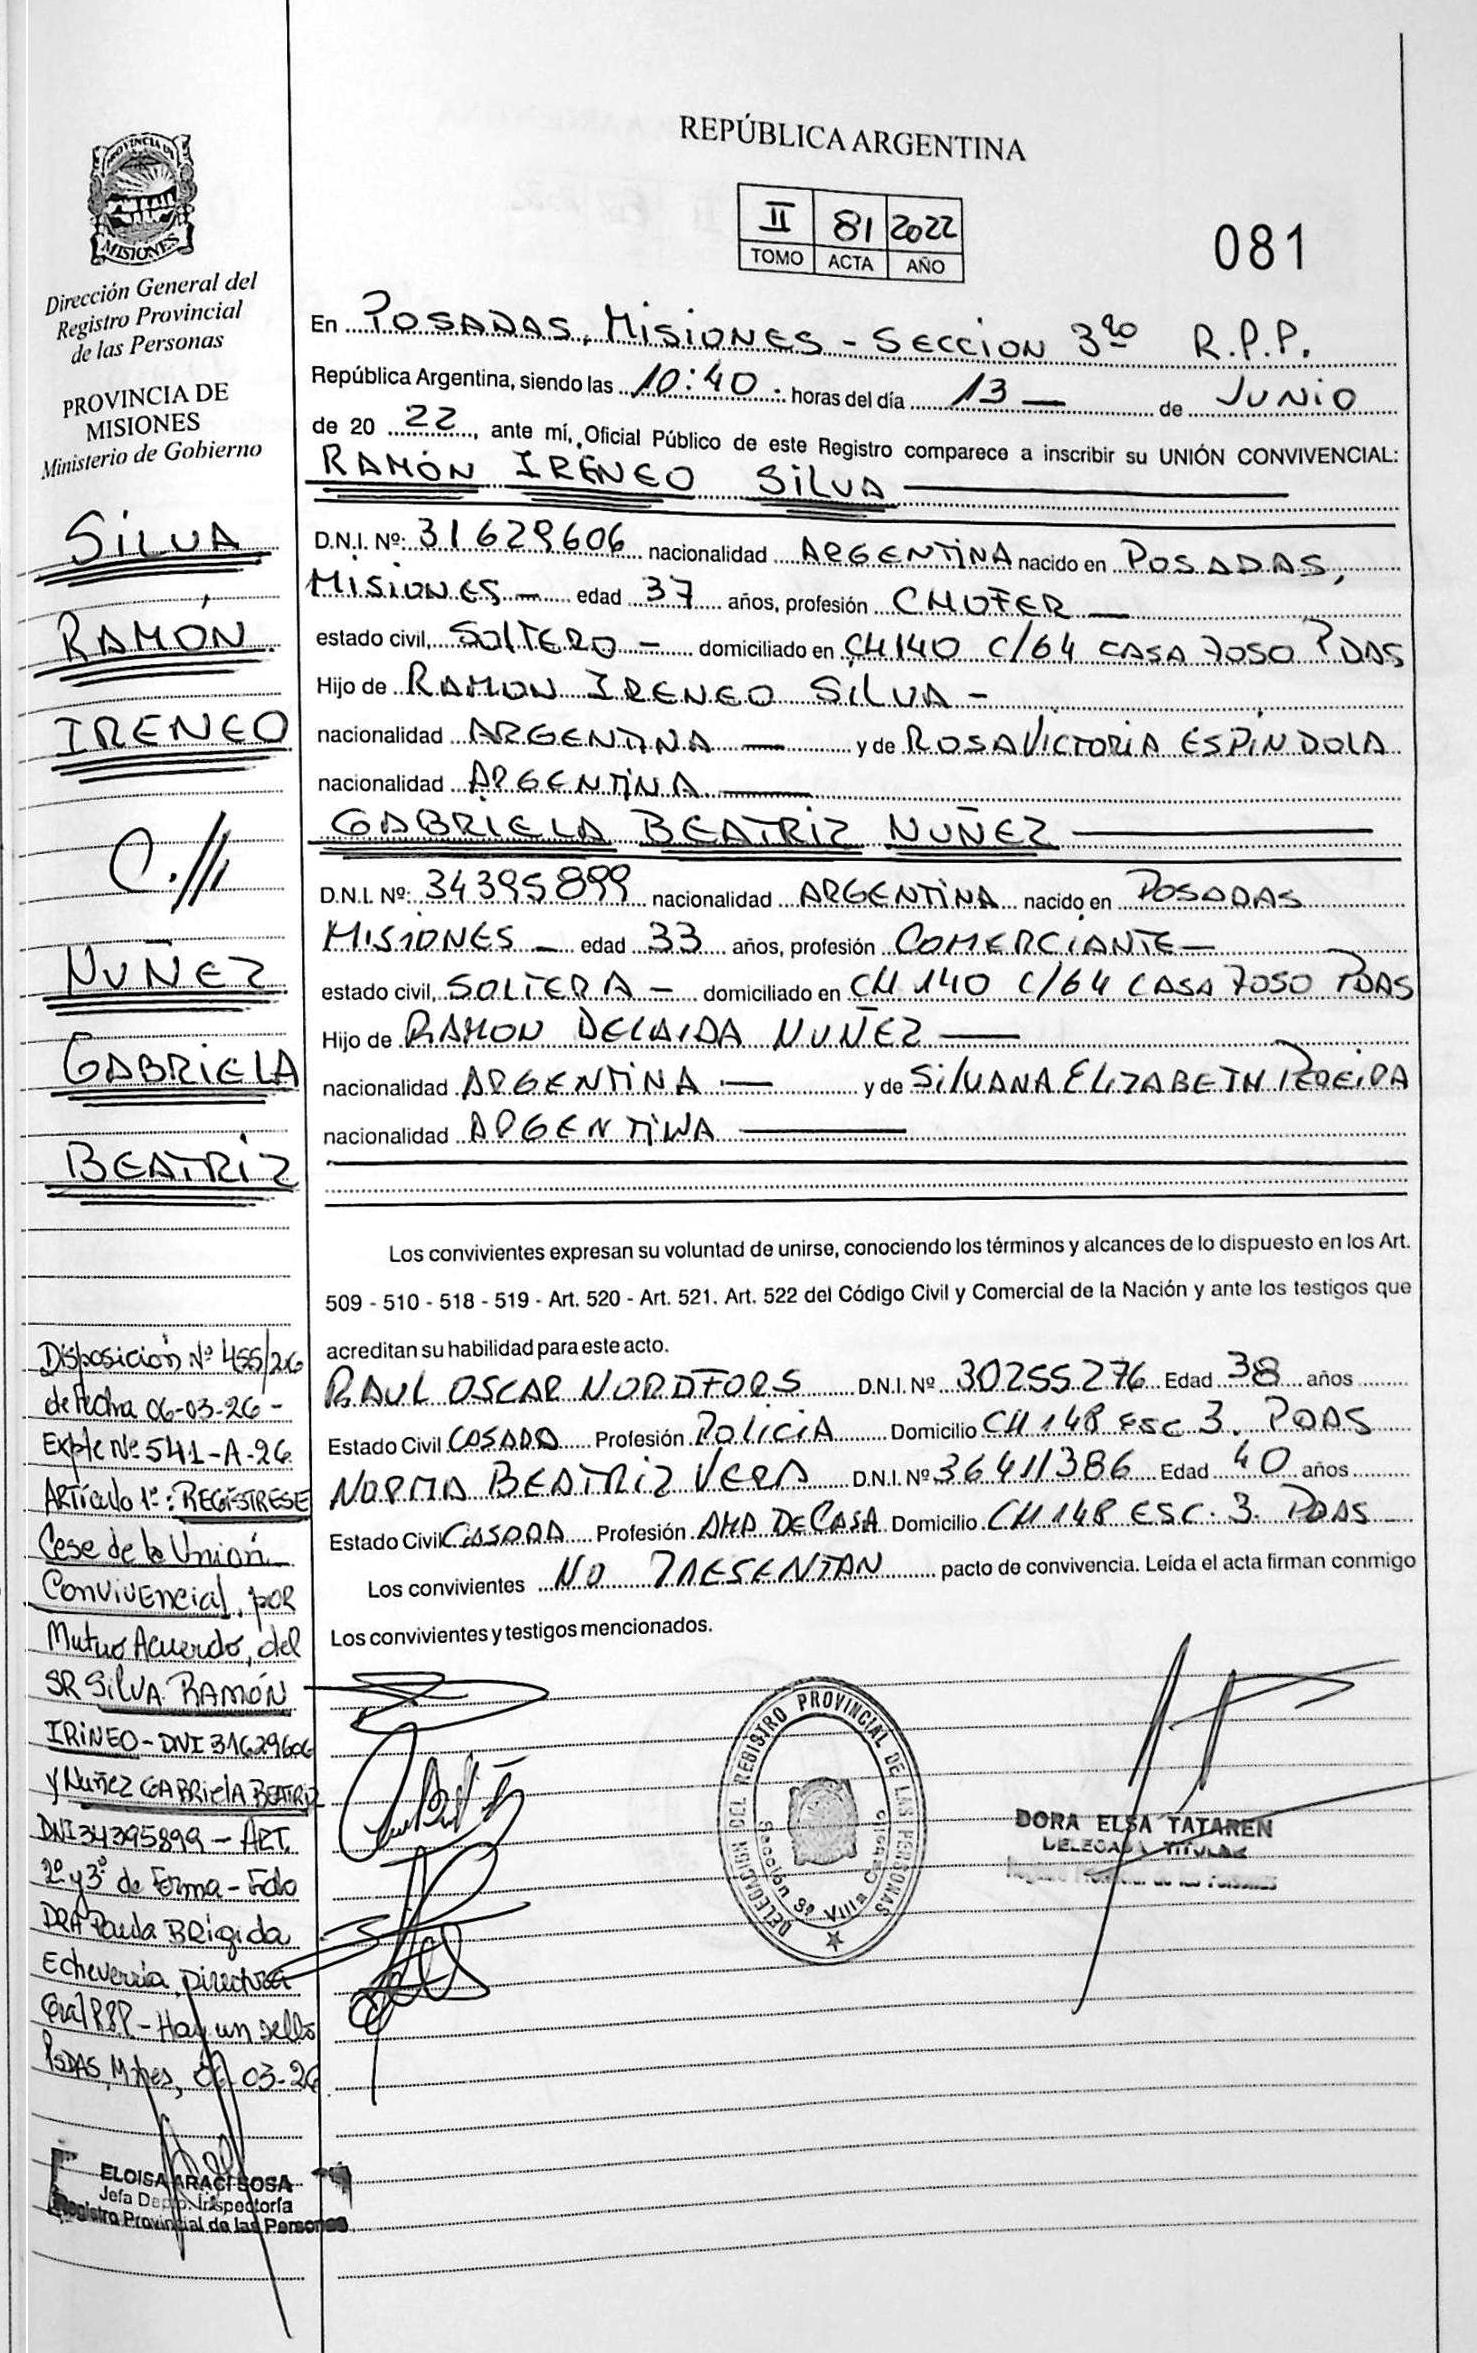 REPÚBLICA ARGENTINA
II 81 2022
TOMO ACTA AÑO
081
PROVINCIA DE
MISIONES
Dirección General del
Registro Provincial
de las Personas
PROVINCIA DE
MISIONES
Ministerio de Gobierno
SILVA
RAMÓN
IRENEO
C.//
NUÑEZ
GABRIELA
BEATRIZ
Disposición Nº 455/26
de Fecha 06-03-26-
Expte Nº 541-A-26
Artículo 1º: REGÍSTRESE
Cese de la Unión
Convivencial, por
Mutuo Acuerdo, del
SR SILVA RAMÓN
IRINEO - DNI 31629606
y Nuñez GABRIELA BEATRIZ
DNI 34395899 - ART.
2º y 3º de Forma - Fdo
DRA Paula BRIGIDA
Echeverria, Directora
Gral RPP - Hay un sello
PSDAS, Mnes, 03-26
ELOISA ARACI SOSA
Jefa Depto. Inspectoría
Registro Provincial de las Personas
En POSADAS, MISIONES - SECCION 3ra R.P.P.
República Argentina, siendo las 10:40 horas del día 13 — de JUNIO
de 20 22, ante mí, Oficial Público de este Registro comparece a inscribir su UNIÓN CONVIVENCIAL:
RAMÓN IRENEO SILVA
D.N.I. Nº: 31629606 nacionalidad ARGENTINA nacido en POSADAS,
MISIONES — edad 37 años, profesión CHOFER —
estado civil, SOLTERO — domiciliado en CH 140 C/64 CASA 7050 PDAS
Hijo de RAMON IRENEO SILVA -
nacionalidad ARGENTINA — y de ROSA VICTORIA ESPINDOLA
nacionalidad ARGENTINA —
GABRIELA BEATRIZ NUÑEZ —
D.N.I. Nº: 34395899 nacionalidad ARGENTINA nacido en POSADAS
MISIONES — edad 33 años, profesión COMERCIANTE —
estado civil, SOLTERA — domiciliado en CH 140 C/64 CASA 7050 PDAS
Hijo de RAMON DELAIDA NUÑEZ —
nacionalidad ARGENTINA — y de SILVANA ELIZABETH PEREIRA
nacionalidad ARGENTINA —
Los convivientes expresan su voluntad de unirse, conociendo los términos y alcances de lo dispuesto en los Art.
509 - 510 - 518 - 519 - Art. 520 - Art. 521. Art. 522 del Código Civil y Comercial de la Nación y ante los testigos que
acreditan su habilidad para este acto.
RAUL OSCAR NORDFORS D.N.I. Nº 30255276 Edad 38 años
Estado Civil CASADO Profesión POLICIA Domicilio CH 148 ESC 3. PDAS
NORMA BEATRIZ VERA D.N.I. Nº 36411386 Edad 40 años
Estado Civil CASADA Profesión AMA DE CASA Domicilio CH 148 ESC. 3. PDAS -
Los convivientes NO PRESENTAN pacto de convivencia. Leída el acta firman conmigo
Los convivientes y testigos mencionados.
DELEGACIÓN DEL REGISTRO PROVINCIAL DE LAS PERSONAS
Sección 3ª Villa
DORA ELSA TATAREN
DELEGADA TITULAR
Registro Provincial de las Personas